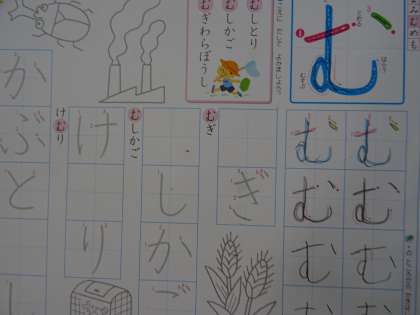 む
むしとり
むしかご
むぎわらぼうし
むむむむ
むむむむ
ぎ
むぎ
しか
むしかご
けり
けむり
かぶとし